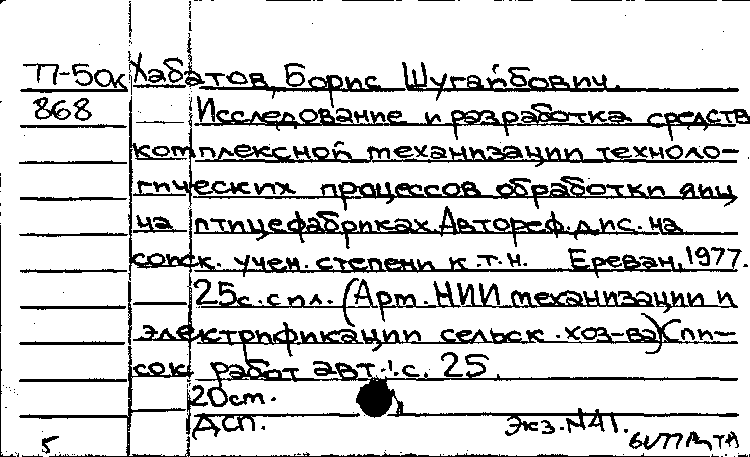 П-50к Хабатов, Борис Шугаибович.
868 Исследование и разработка средств
комплексной механизации техноло-
гических процессов обработки яиц
на птицефабриках. Автореф. дис. на
соиск. учен. степени к.т.н. Ереван, 1977.
25с. с ил. (Арм. НИИ механизации и
электрификации сельск. хоз-ва) Спи-
сок работ авт.: с. 25.
20см.
ДСП. Экз. N41.
5